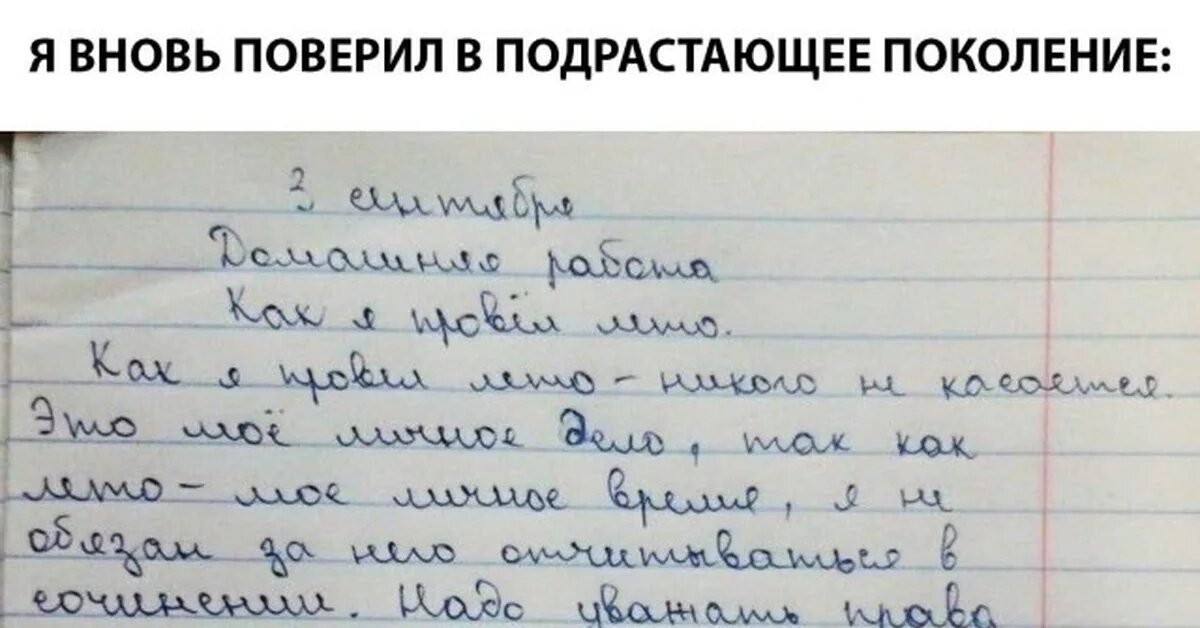 Я ВНОВЬ ПОВЕРИЛ В ПОДРАСТАЮЩЕЕ ПОКОЛЕНИЕ:
3 сентября
Домашняя работа
Как я провёл лето.
Как я провел лето – никого не касается.
Это моё личное дело, так как
лето – мое личное время, я не
обязан за него отчитываться в
сочинении. Надо уважать права